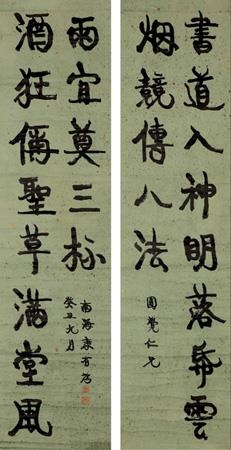 書道入神明落帋雲
烟競傳八法
圓覺仁兄
酒狂偁聖草滿堂風
雨宜奠三杯
癸丑九月
南海康有為